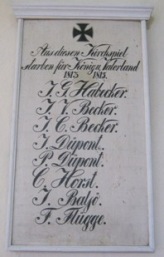 Aus diesem Kirchspiel
starben für König u. Vaterland
1813 1815.
J. G. Habecker.
J. J. Becker.
J. C. Becker.
J. Dupont.
P. Dupont.
C. Horst.
J. Batjó.
F. Flügge.